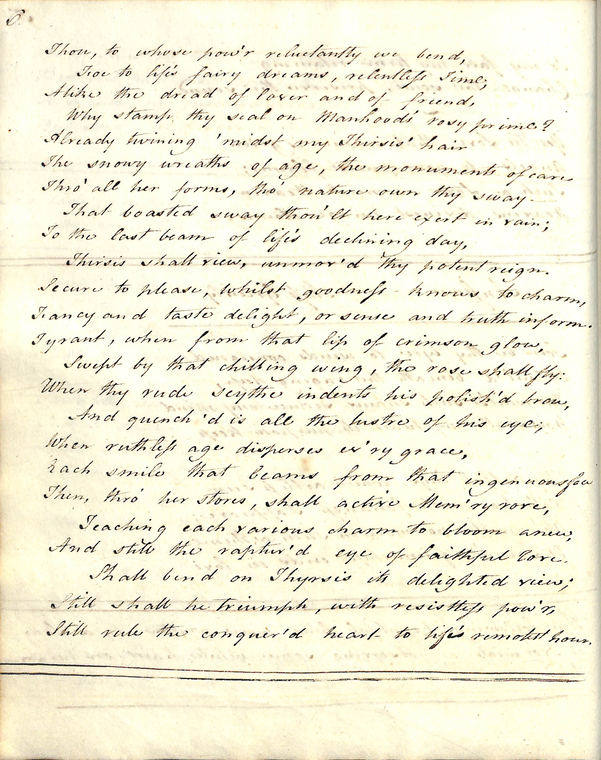 6.
Thou, to whose pow'r reluctantly we bend,
Foe to life's fairy dreams, relentless Time,
Alike the dread of lover and of friend,
Why stamp thy seal on Manhood's rosy prime?
Already twining 'midst my Thirsis' hair
The snowy wreaths of age, the monuments of care
Thro' all her forms, tho' nature own thy sway
That boasted sway thou'lt here exert in vain;
To the last beam of life's declining day,
Thirsis shall view, unmov'd thy potent reign.
Secure to please, whilst goodness knows to charm,
Fancy and taste delight, or sense and truth inform.
Tyrant, when from that lip of crimson glow,
Swept by that chilling wing, the rose shall fly:
When thy rude scythe indents his polish'd brow,
And quench'd is all the lustre of his eye;
When ruthless age disperses ev'ry grace,
Each smile that beams from that ingenuous face
Then, thro' her stores, shall active Mem'ry rove,
Teaching each various charm to bloom anew,
And still the raptur'd eye of faithful Love.
Shall bend on Thyrsis its delighted view;
Still shall he triumph, with resistless pow'r,
Still rule the conquer'd heart to life's remotest hour.